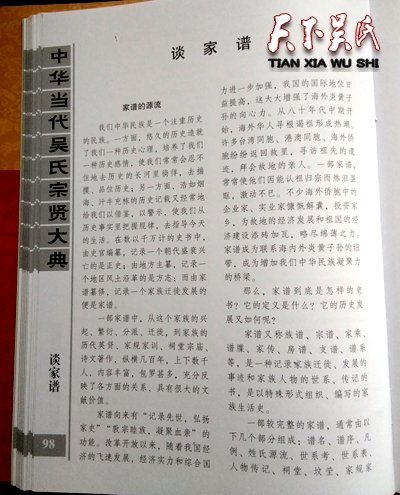 天下吴氏
TIAN XIA WU SHI
谈家谱
中华当代吴氏宗贤大典
谈家谱
98
家谱的源流
我们中华民族是一个注重历史
的民族。一方面，悠久的历史造就
了我们一种历史心理，培养了我们
一种历史感情，使我们常常会忍不
住地去历史的长河里徜徉，去揣
摸、品位历史；另一方面，浩如烟
海、汗牛充栋的历史记载又经常地
给我们以借鉴，以警示，使我们从
历史事实里把握规律，去指导今天
的生活。在数以千万计的史书中，
由史官编纂，记录一个朝代盛衰兴
亡的是正史；由地方主纂，记录一
个地区风土沿革的是方志；而由家
谱纂修，记录一个家族迁徙发展的
便是家谱。
一部家谱中，从这个家族的兴
起、繁衍、分派、迁徙，到家族的
历代英贤、家规家训、祠堂宗庙、
诗文著作，纵横几百年，上下数千
人，内容丰富，包罗甚多，充分反
映了各方面的关系，具有很大的文
献价值。
家谱向来有“记录先世，弘扬
家史”“敦宗睦族，凝聚血亲”的
功能。改革开放以来，随着我国经
济的飞速发展，经济实力和综合国
力进一步加强，我国的国际地位日
益提高，这大大增强了海外炎黄子
孙的向心力。从八十年代中期开
始，海外华人寻根谒祖形成热潮，
许多台湾同胞、港澳同胞、海外侨
胞纷纷返回故里，寻访祖先的遗
迹，拜会故地的亲人。一部家谱，
常常使他们因能认祖归宗而热泪盈
眶，激动不已。不少海外侨胞中的
企业家、实业家慷慨解囊，投资家
乡，为故地的经济发展和祖国的经
济建设添砖加瓦，略尽绵薄之力。
家谱成为联系海内外炎黄子孙的纽
带，成为增加我们中华民族凝聚力
的桥梁。
那么，家谱到底是怎样的史
书？它的定义是什么？它的历史发
展又如何呢？
家谱又称族谱、宗谱、家乘、
谱牒、家传、房谱、支谱、谱系
等，是一种记录家族迁徙、发展的
事迹和家族人物的世系、传记的
书，是以特殊形式组织、编写的家
族生活史。
一部较完整的家谱，通常由以
下几个部分组成；谱名、谱序、凡
例、姓氏源流、世系考、世系表、
人物传记、祠堂、坟茔、家规家